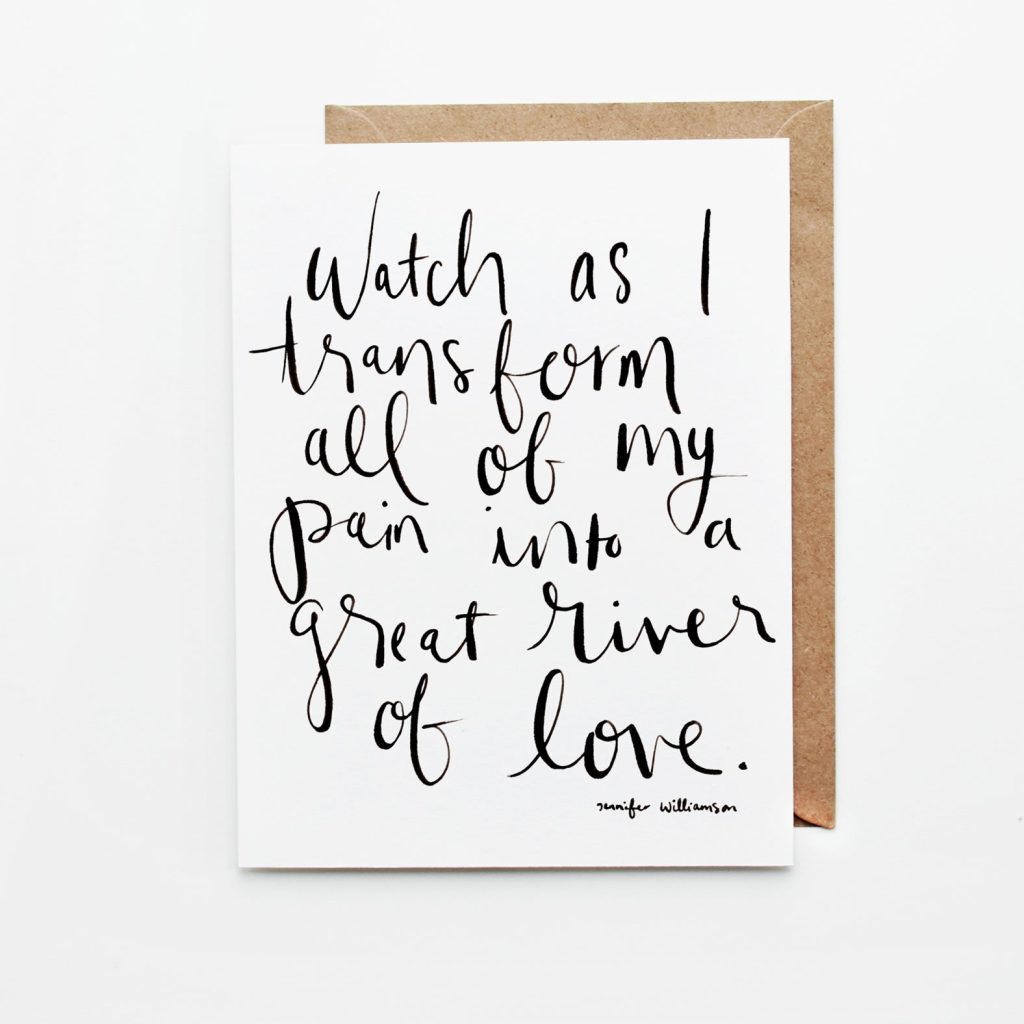 Watch as I
transform
all of my
pain into a
great river
of love.
Jennifer Williamson